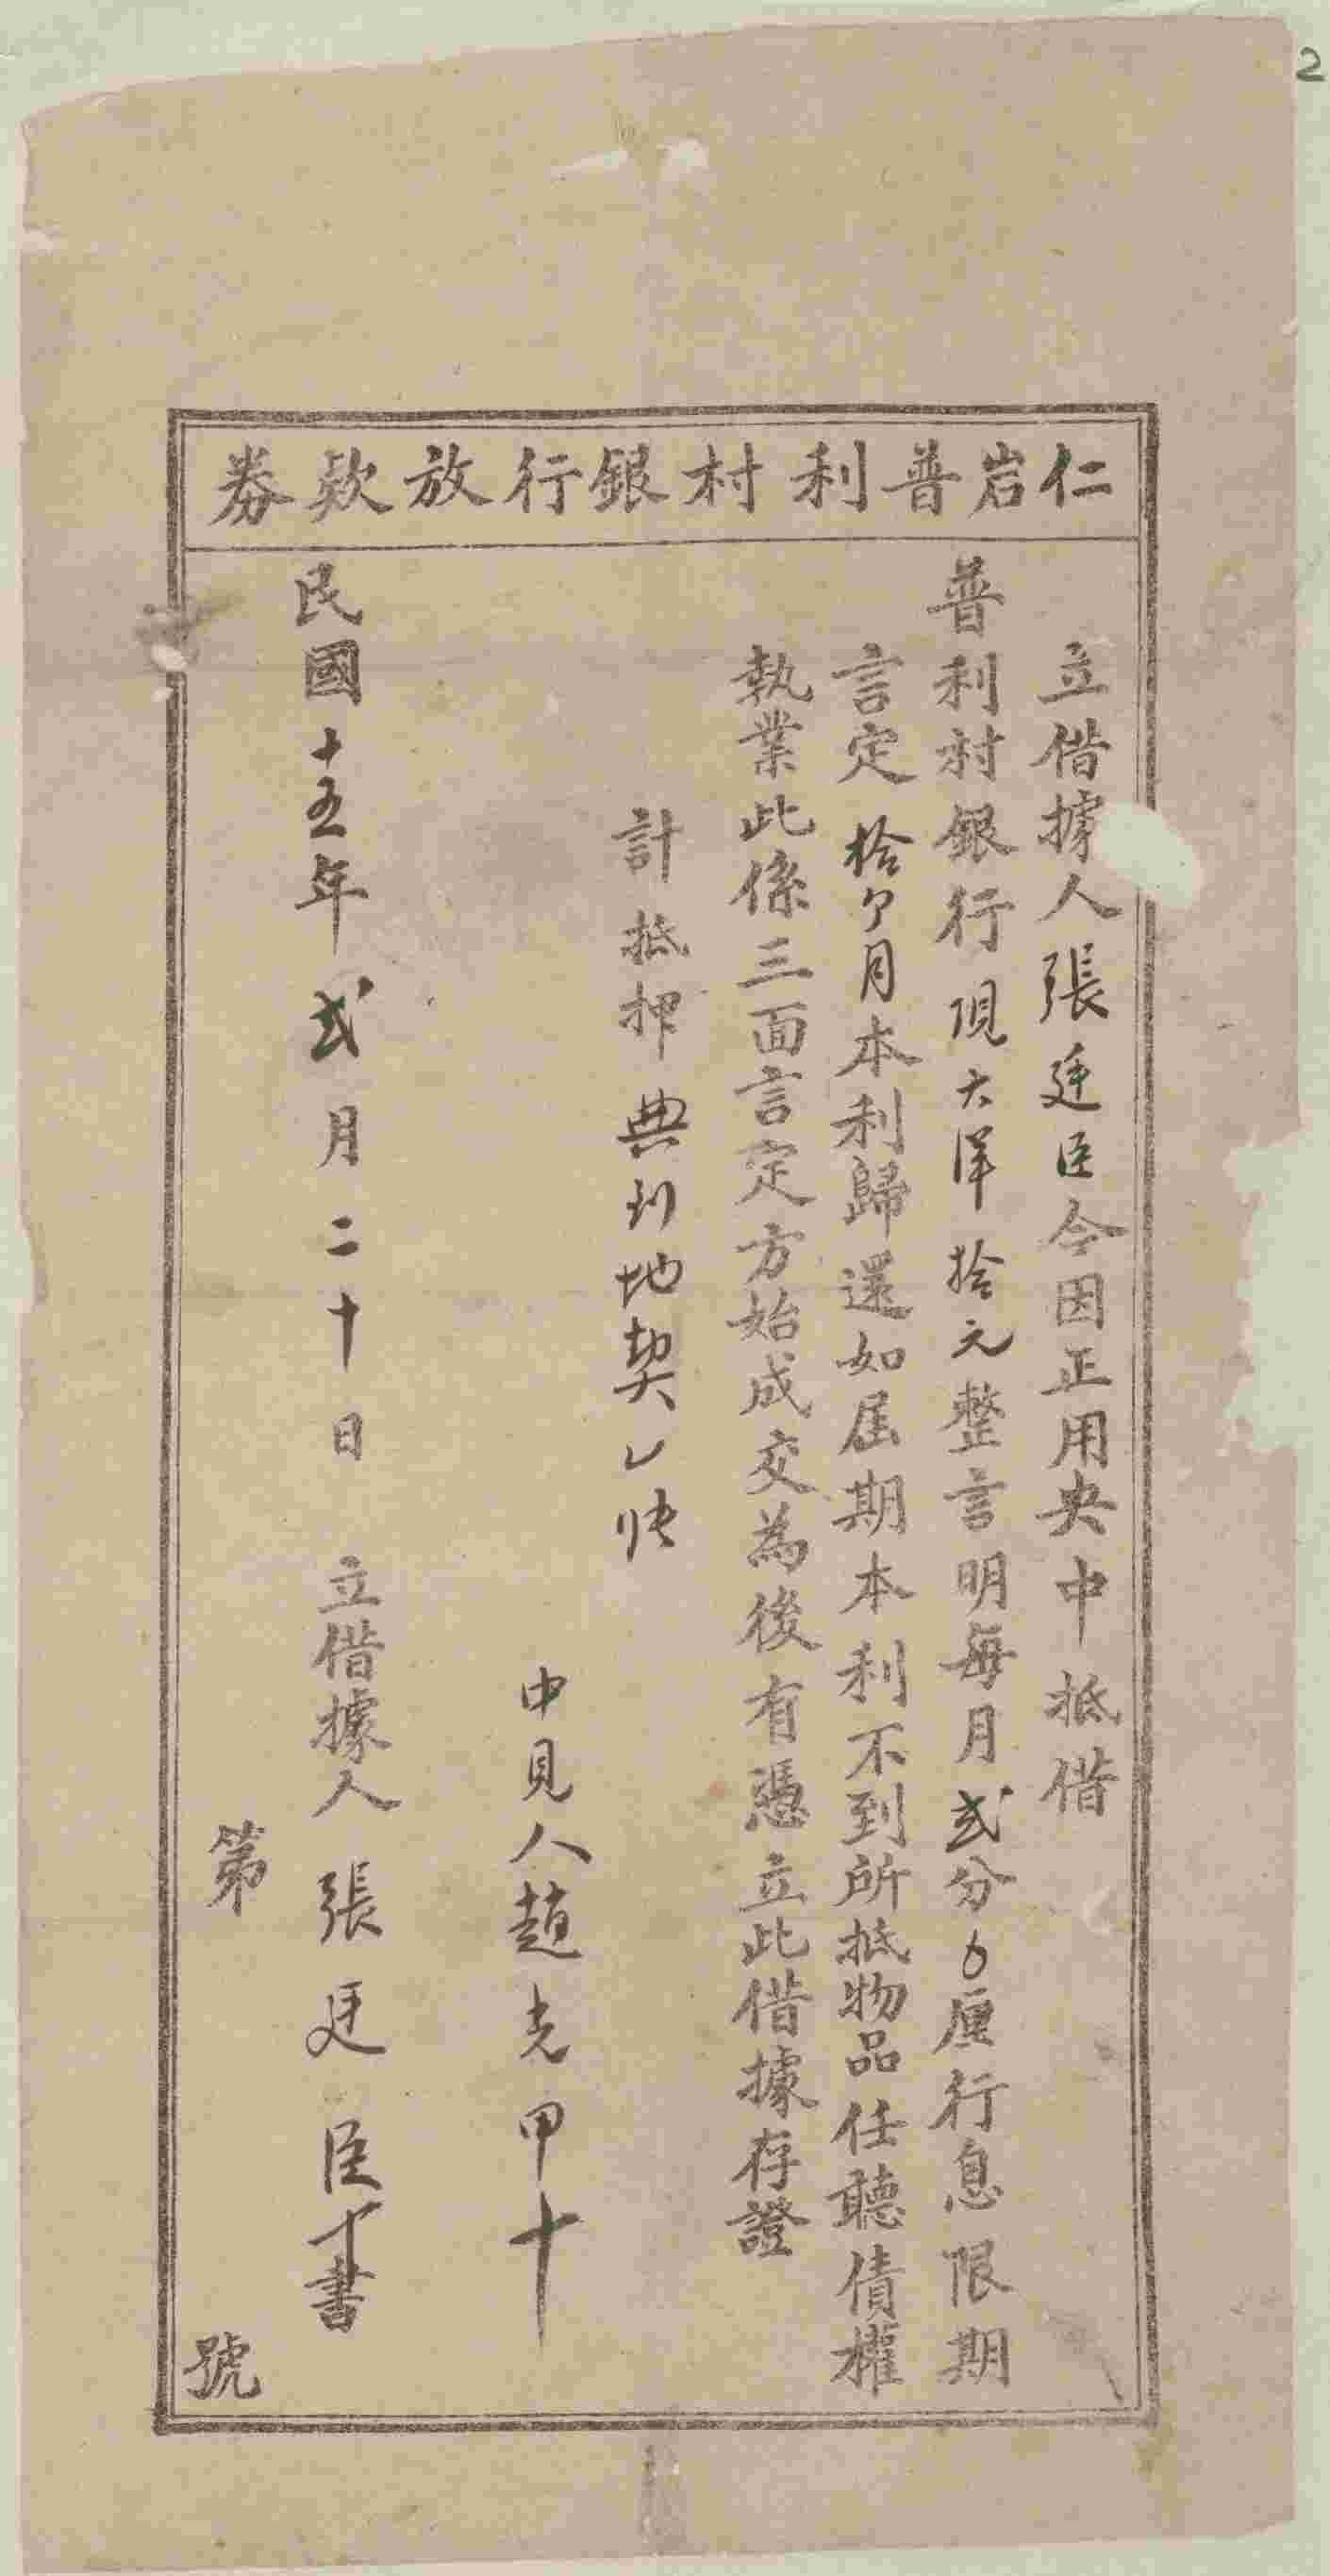 2
仁岩普利村銀行放欵券
立借據人張廷臣今因正用央中抵借
普利村銀行現大洋拾元整言明每月弍分厘行息限期
言定拾个月本利歸還如屆期本利不到所抵物品任聽債權
執業此係三面言定方始成交為後有憑立此借據存證
計抵押典到地契乙帋
中見人趙光甲十
民國十五年弍月二十日立借據人張廷臣十書
第號